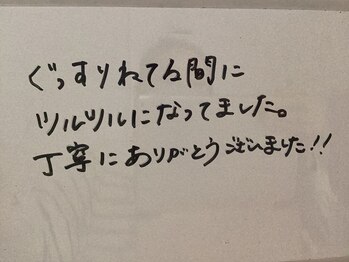 ぐっすりねてる間に
ツルツルになってました。
丁寧にありがとうございました!!